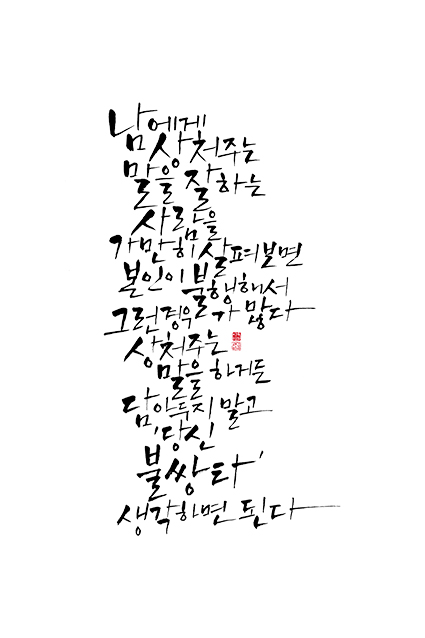 남에게
상처주는
말을 잘하는
사람을
가만히 살펴보면
본인이 불행해서
그런경우가 많다
상처주는
말을 하거든
담아두지 말고
'당신
불쌍타'
생각하면 된다